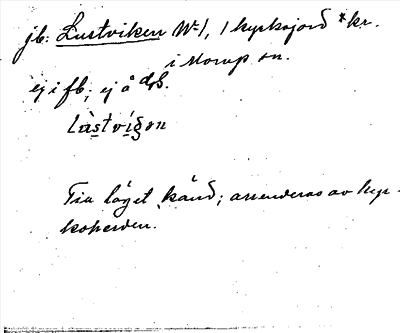 jb: Lustviken № 1, 1 kyrkojord * kr.
i Morup sn.
ej i fb; ej å ds.
làstvígon
Till läget känd; arrenderas av kyr-
koherden.